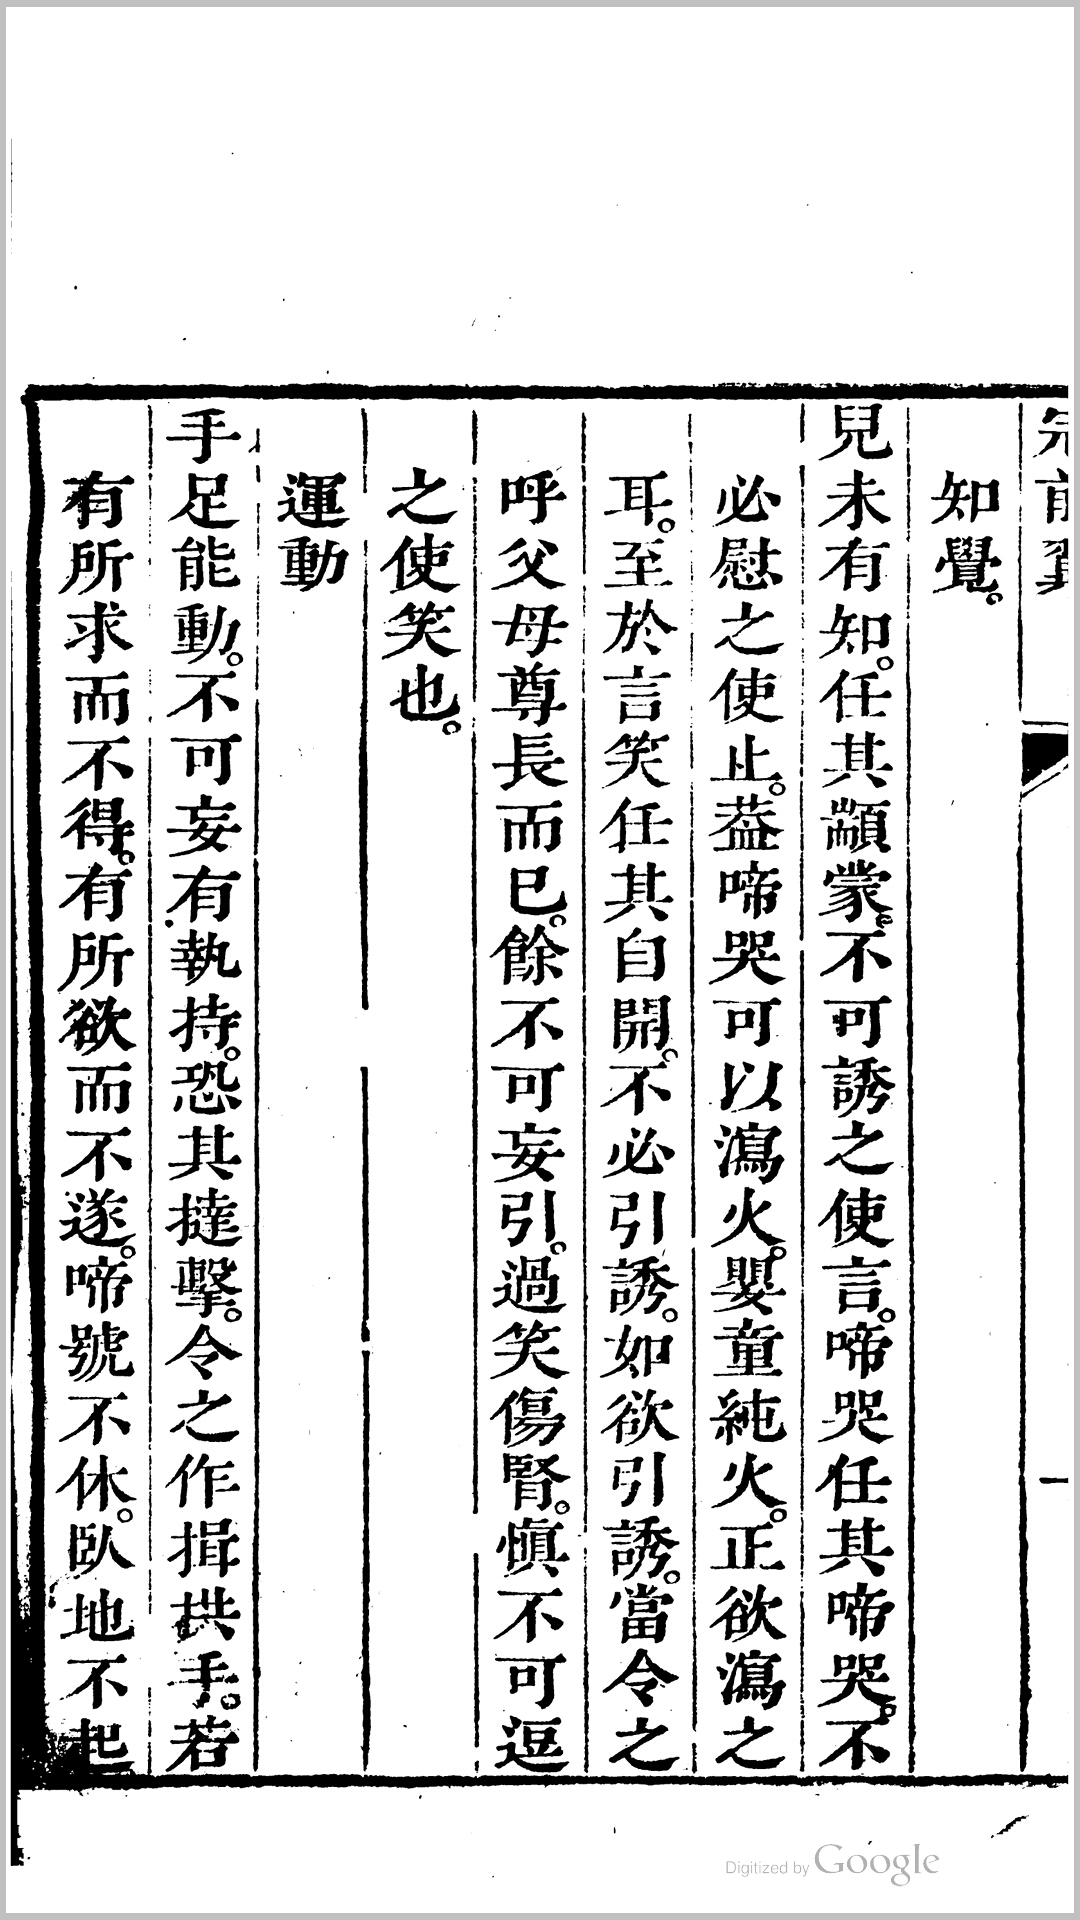 知覺。
兒未有知。任其顓蒙。不可誘之使言。啼哭任其啼哭。不
必慰之使止。葢啼哭可以瀉火。嬰童純火。正欲瀉之
耳。至於言笑任其自開。不必引誘。如欲引誘。當令之
呼父母尊長而已。餘不可妄引。過笑傷腎。愼不可逗
之使笑也。
運動
手足能動。不可妄有執持。恐其撻擊。令之作揖拱手。若
有所求而不得。有所欲而不遂。啼號不休。臥地不起
Digitized by Google